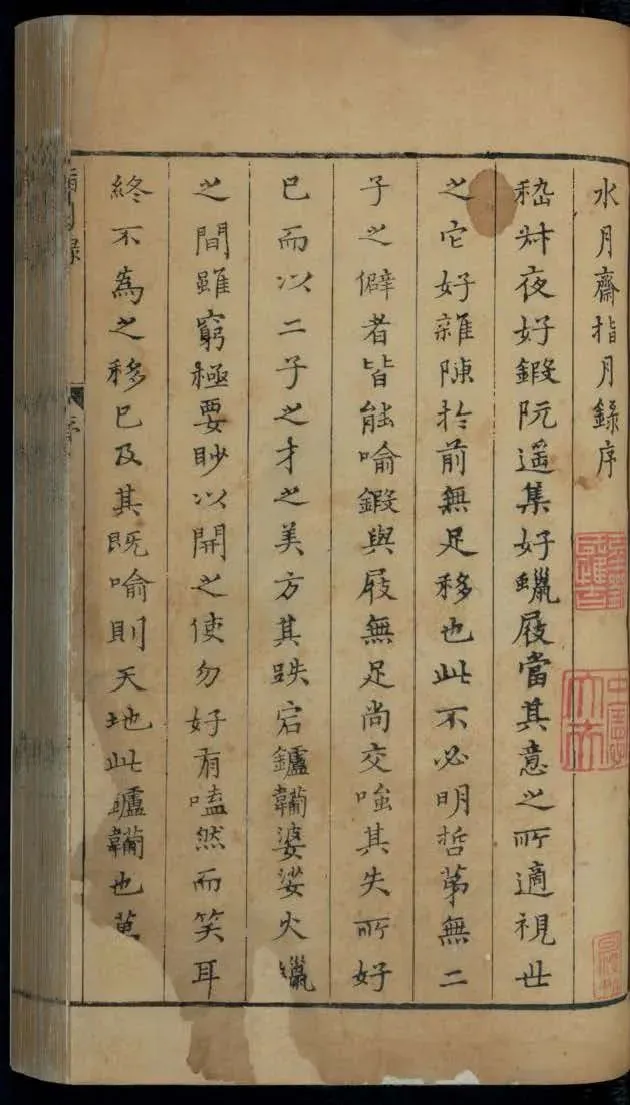 水月齋指月錄序
嵇叔夜好鍛阮遥集好蠟屐當其意之所適視世
之它好雜陳扵前無足移也此不必明哲苐無二
子之僻者皆能喻鍛與屐無足尚交嗤其失所好
已而以二子之才之美方其跌宕鑪鞴婆娑火蠟
之間雖窮極要眇以開之使勿好有嗑然而笑耳
終不為之移已及其既喻則天地此鑪鞴也萬